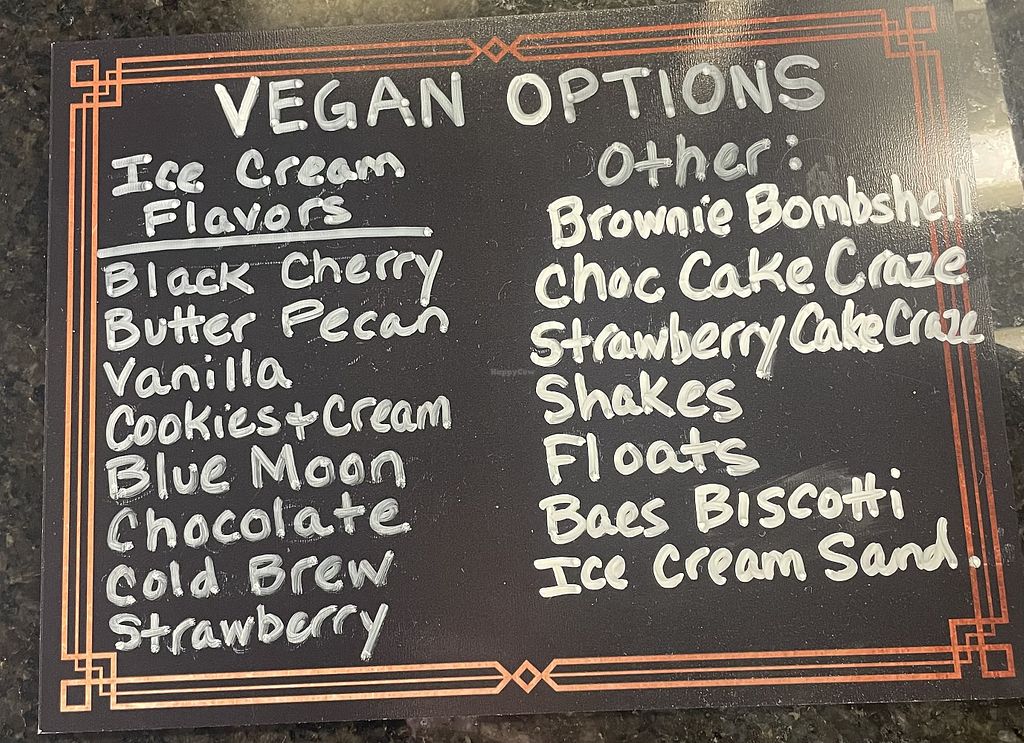 VEGAN OPTIONS
Ice Cream
Flavors
Black Cherry
Butter Pecan
Vanilla
Cookies + Cream
Blue Moon
Chocolate
Cold Brew
Strawberry
Other:
Brownie Bombshell
Choc Cake Craze
Strawberry Cake Craze
Shakes
Floats
Baes Biscotti
Ice Cream Sand.
HappyCow